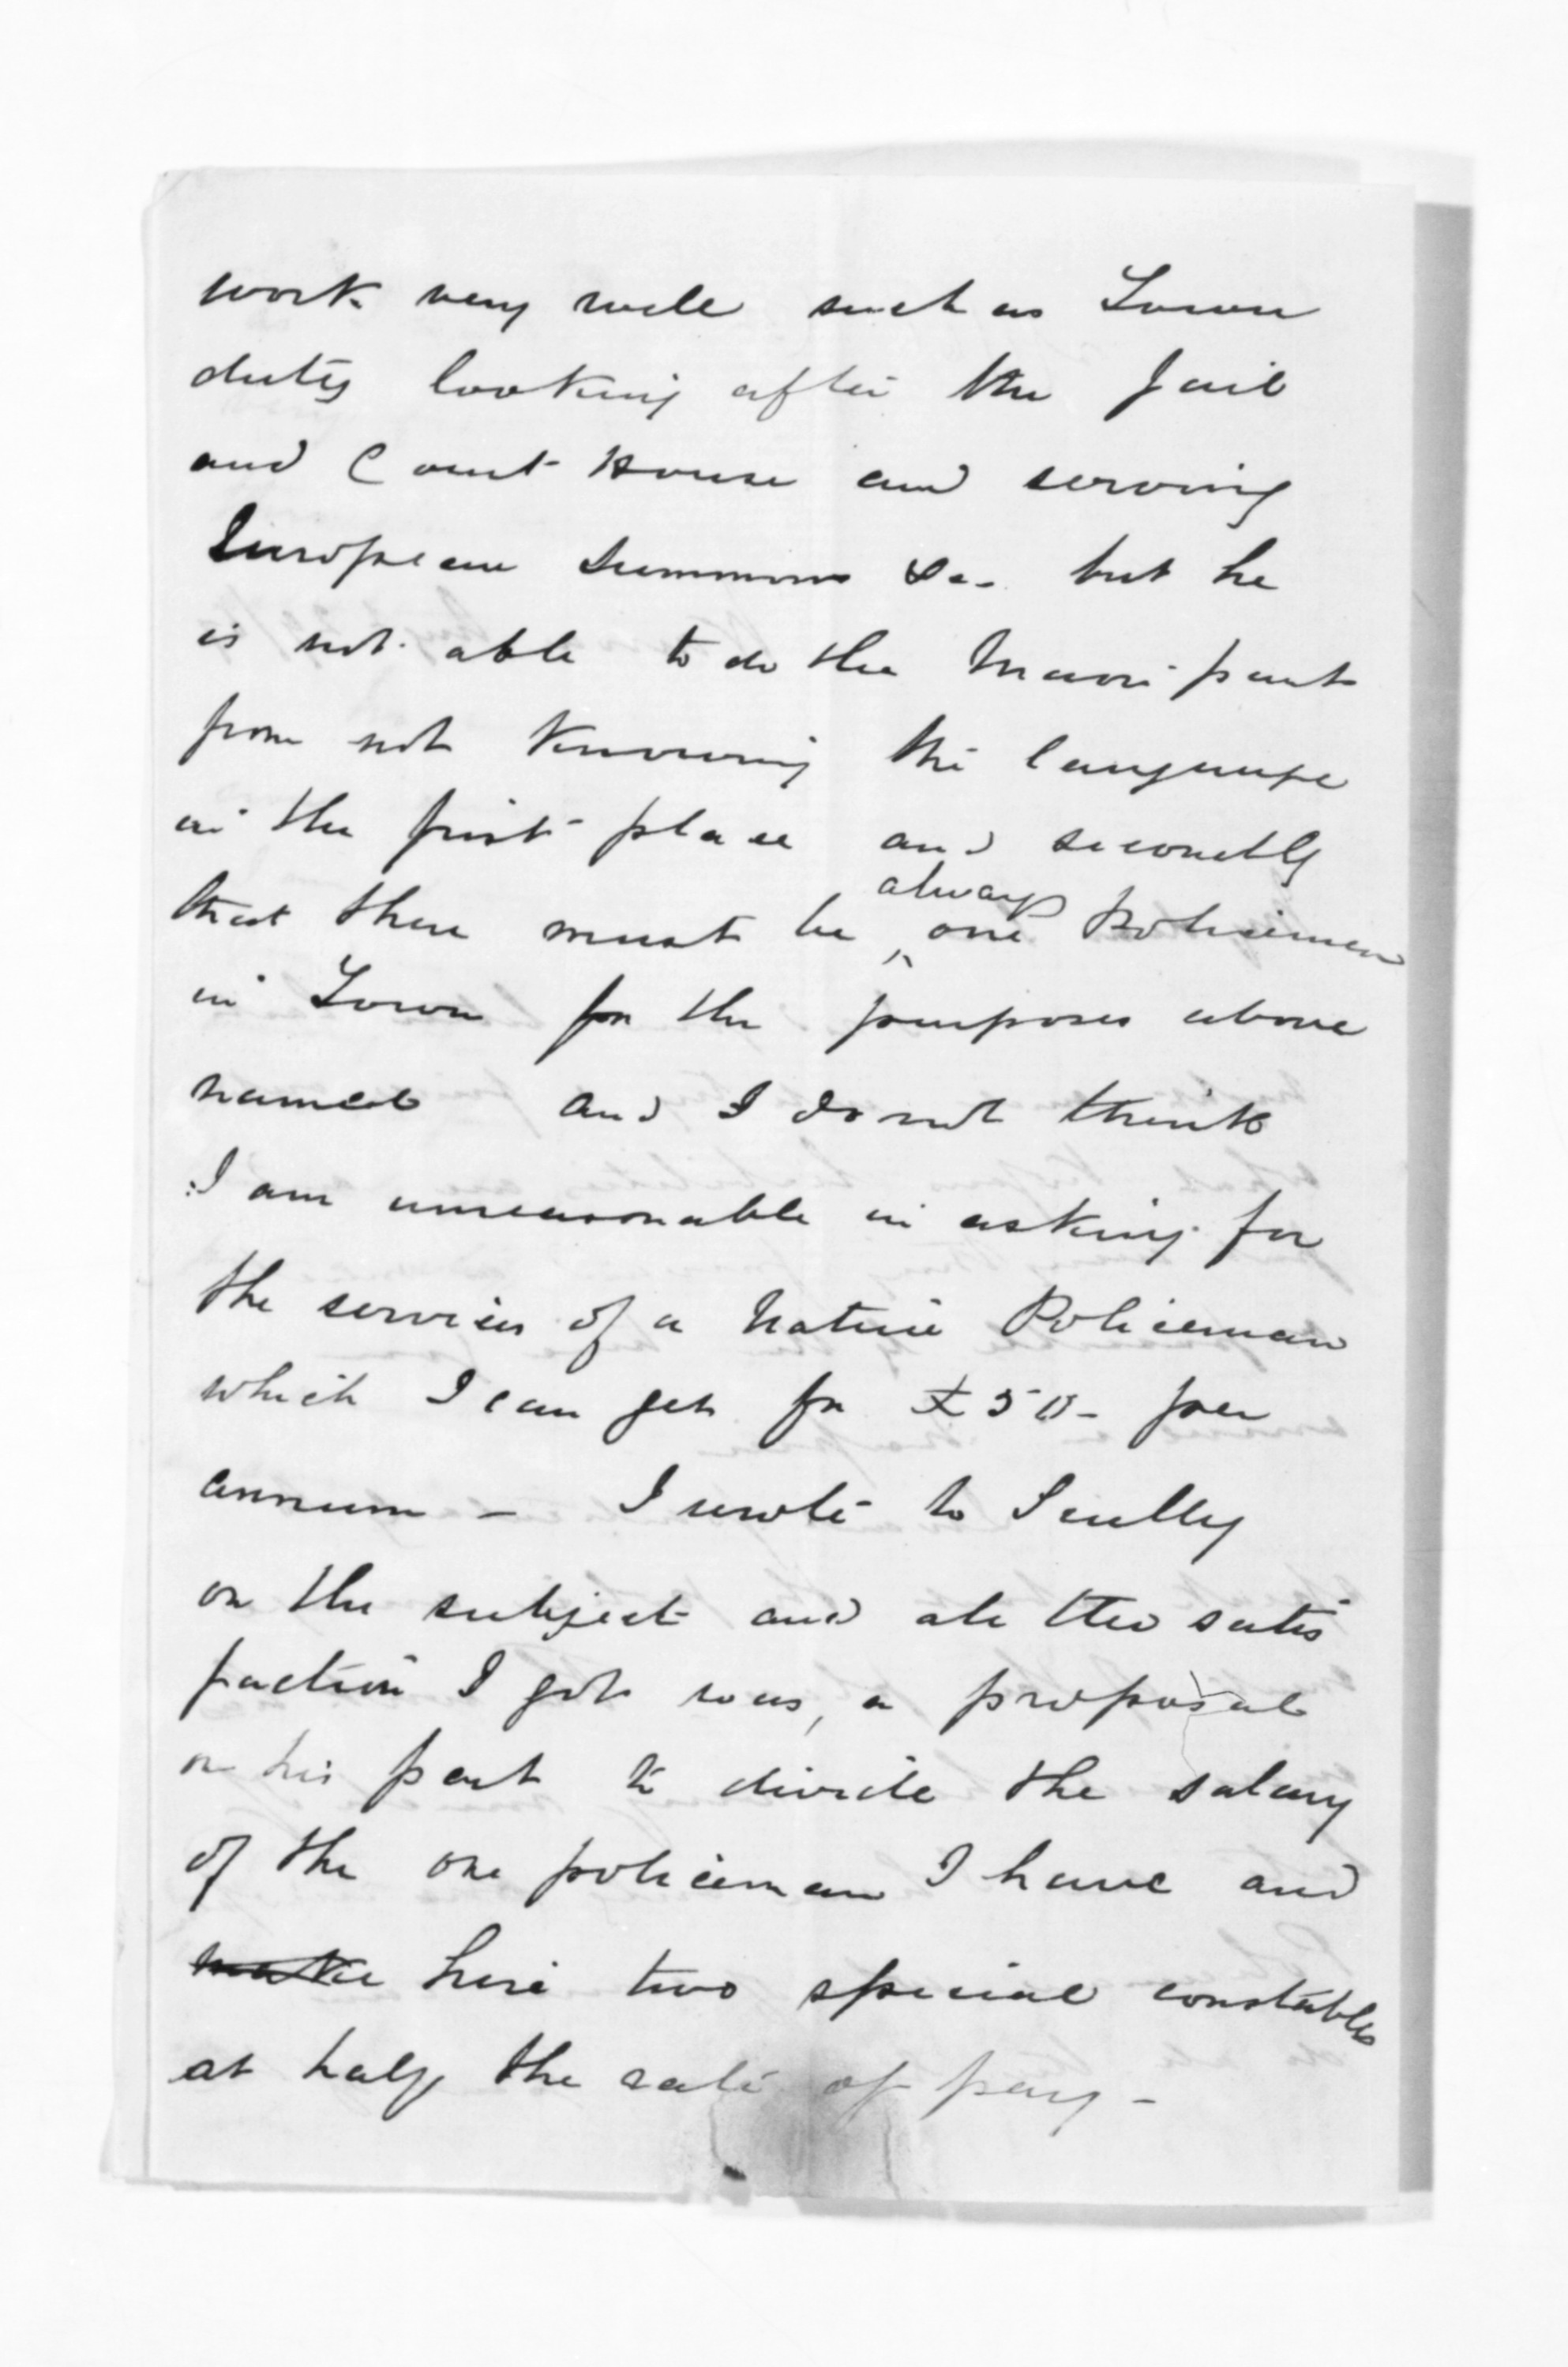 work very well such as Town
duty looking after the Jail
and Court House and serving
European Summons &c- but he
is not able to do the Maori part
from not knowing the language
in the first place and secondly
that there must be always one Policeman
in Town for the purposes above
named and I do not think
I am unreasonable in asking for
the services of a Native Policeman
which I can get for £50- per
annum - I wrote to Scully
on the subject and all the satis
faction I got was, a proposal
on his part to divide the salary
of the one policeman I have and
make hire two special constables
at half the rate of pay -